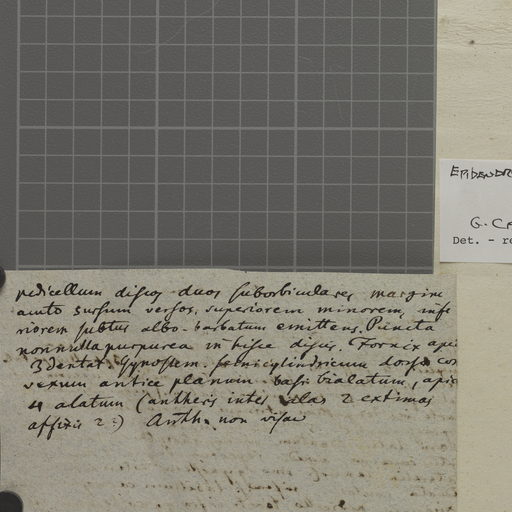 pedicellum discos duos suborbiculares margine
acuto sursum versos, superiorem minorem, infe
riorem subtus albo-barbatum emittens. Puncta
nonnulla purpurea in hisce discis. Fornix api
3dentat. Gynostem. semicylindricum dorso con
vexum antice planum basi bialatum, apice
4 alatum (antheris inter alas 2 extimas
affixis 2:) Anth. non visae
EPIDENDR
G. CA
Det. - re